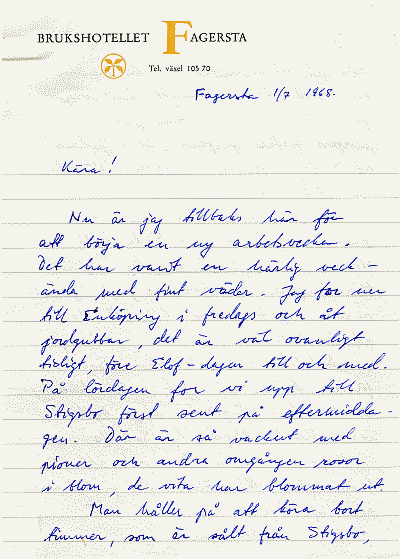 BRUKSHOTELLET FAGERSTA
Tel. växel 105 70
Fagersta 1/7 1968.
Kära!
Nu är jag tillbaks här för
att börja en ny arbetsvecka.
Det har varit en härlig veck-
ända med fint väder. Jag for ner
till Enköping i fredags och åt
jordgubbar, det är väl ovanligt
tidigt, före Elof-dagen till och med.
På lördagen for vi upp till
Stigsbo först sent på eftermidda-
gen. Där är så vackert med
pioner och andra omgången rosor
i blom, de vita har blommat ut.
Man håller på att köra bort
timmer, som är sålt från Stigsbo,